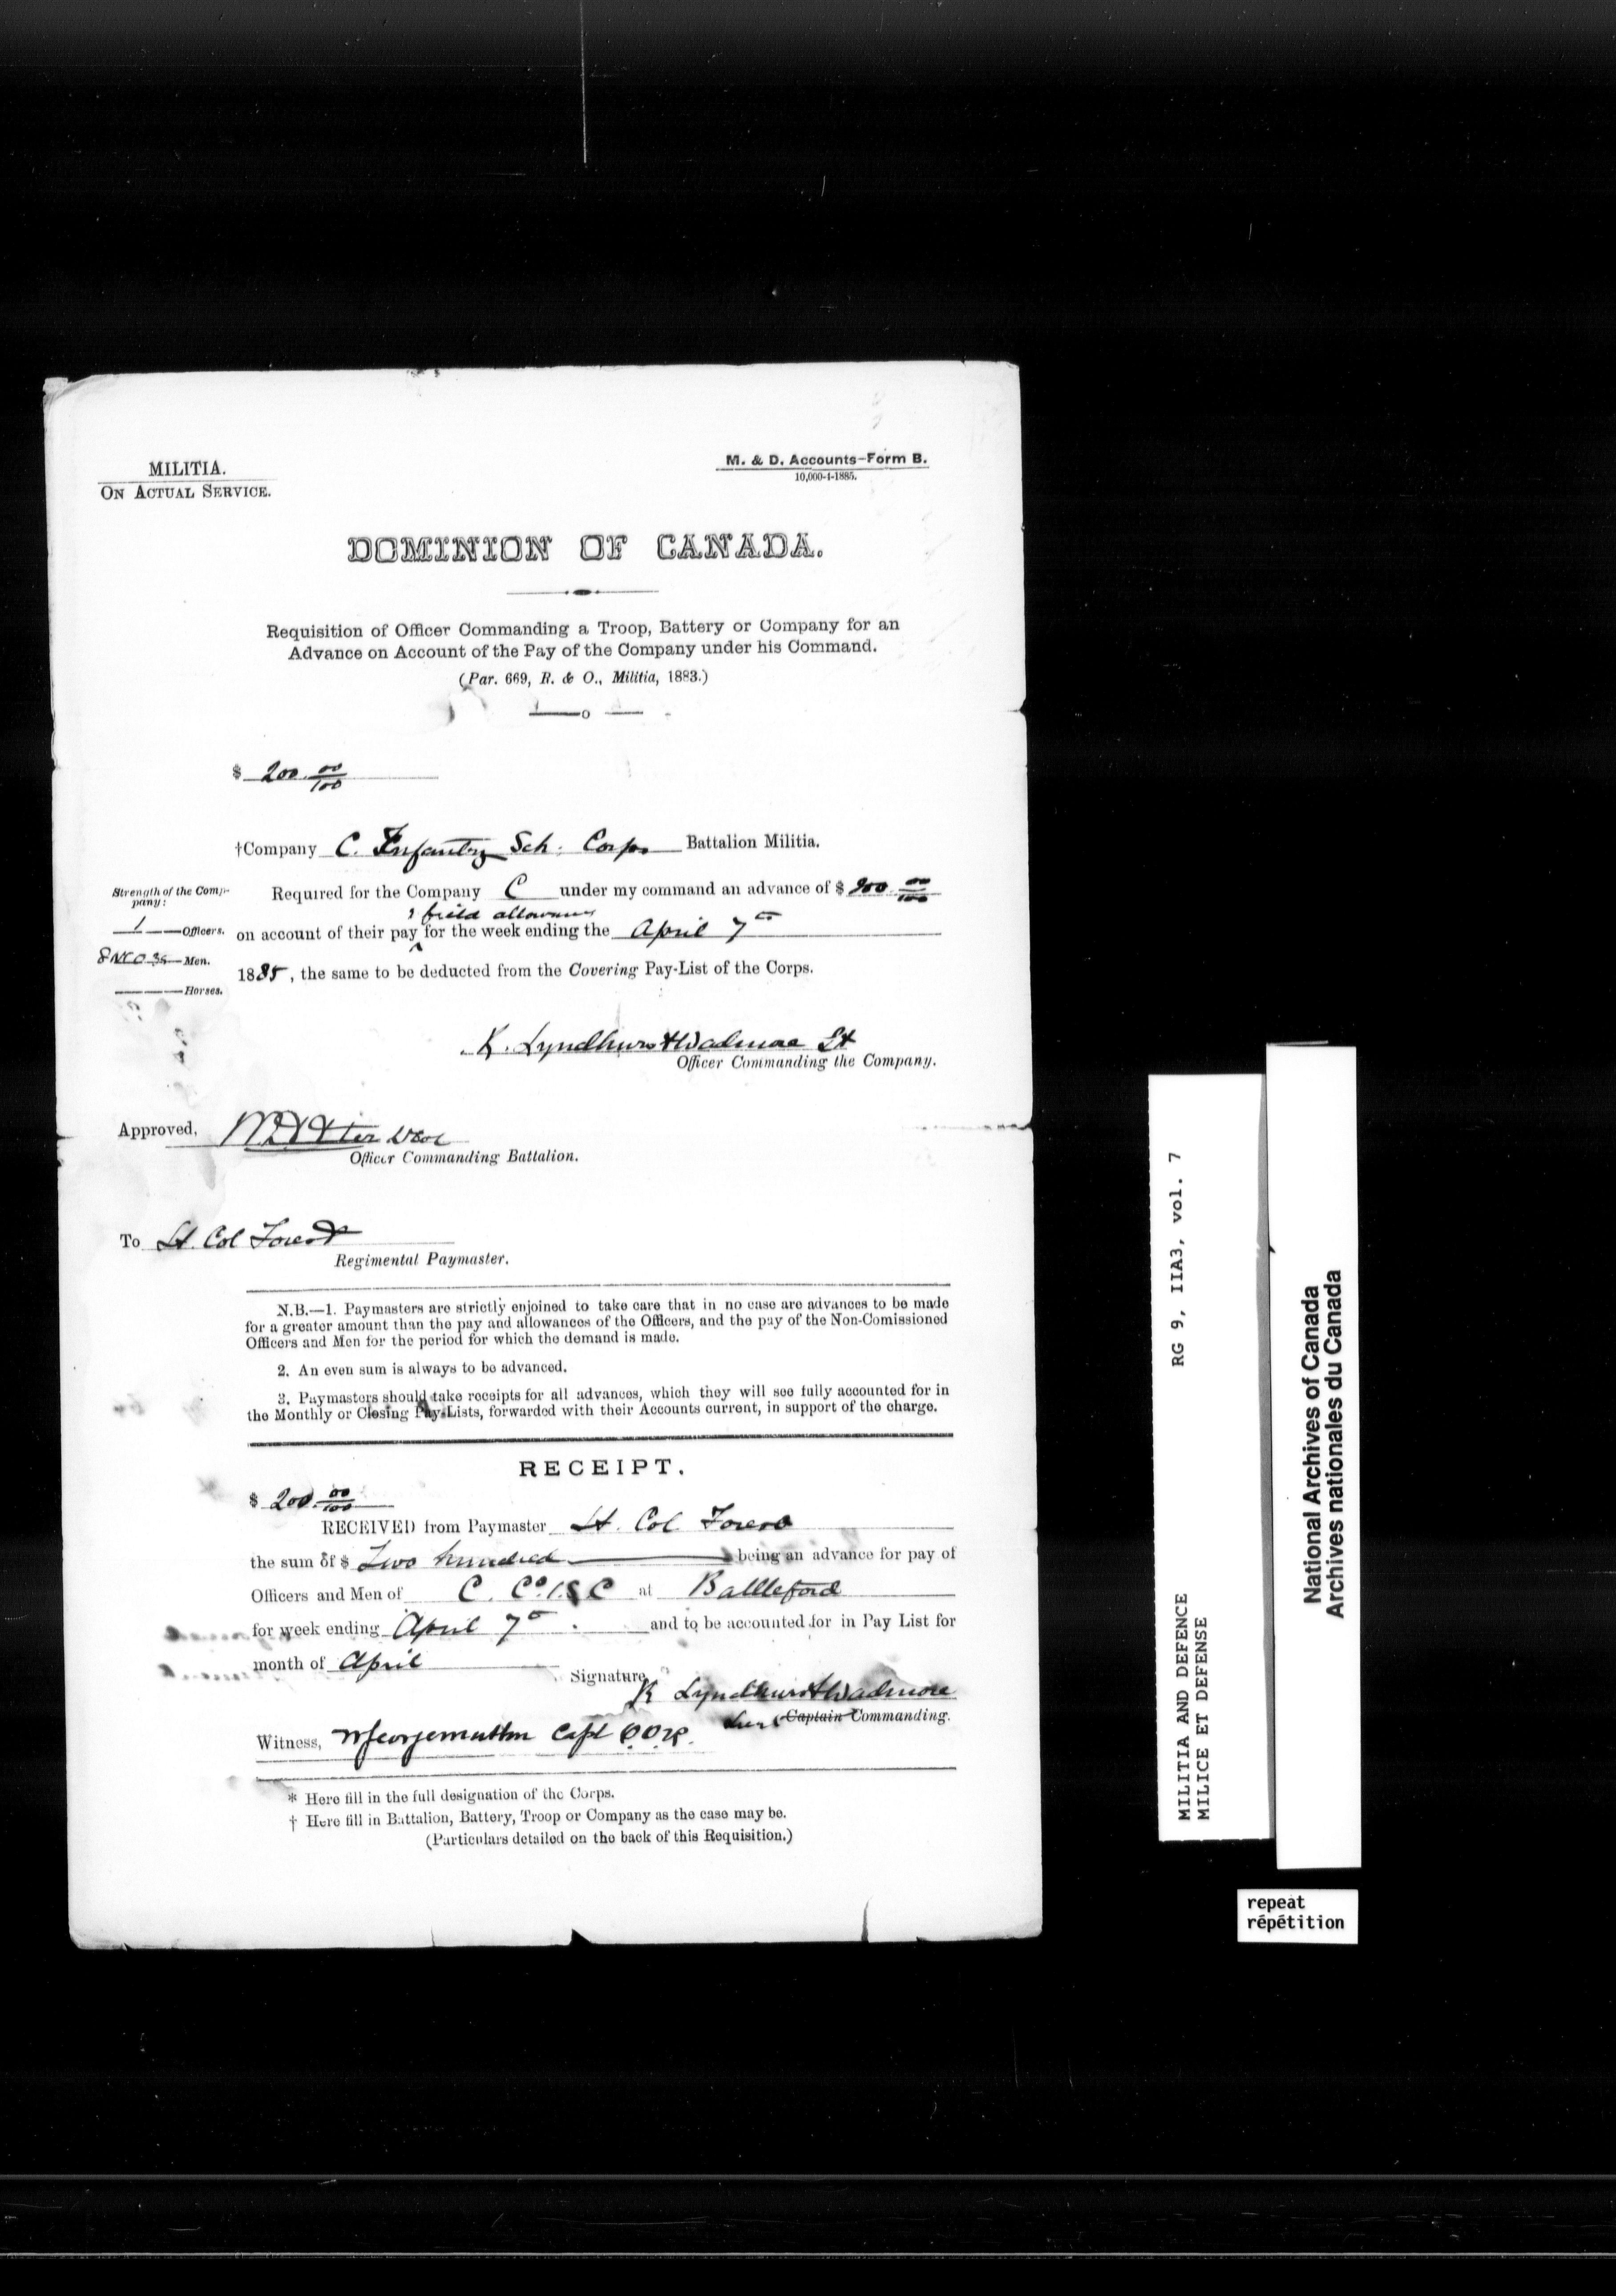 MILITIA.
ON ACTUAL SERVICE.
M. & D. Accounts-Form B.
10,000-4-1885.
DOMINION OF CANADA.
Requisition of Officer Commanding a Troop, Battery or Company for an
Advance on Account of the Pay of the Company under his Command.
(Par. 669, R. & O., Militia, 1883.)
$ 200. 00/100
†Company C. Infantry Sch. Corps Battalion Militia.
Strength of the Company:
1 Officers.
8 NCO 35 Men.
Horses.
Required for the Company C under my command an advance of $ 200 00/100
& field allowance
on account of their pay ^ for the week ending the April 7th
1885, the same to be deducted from the Covering Pay-List of the Corps.
K. Lyndhurst Wadmore Lt
Officer Commanding the Company.
Approved, W D Otter Lt Col
Officer Commanding Battalion.
To Lt. Col Forest
Regimental Paymaster.
N.B.—1. Paymasters are strictly enjoined to take care that in no case are advances to be made
for a greater amount than the pay and allowances of the Officers, and the pay of the Non-Comissioned
Officers and Men for the period for which the demand is made.
2. An even sum is always to be advanced.
3. Paymasters should take receipts for all advances, which they will see fully accounted for in
the Monthly or Closing Pay-Lists, forwarded with their Accounts current, in support of the charge.
RECEIPT.
$ 200. 00/100
RECEIVED from Paymaster Lt. Col. Forest
the sum of $ Two hundred being an advance for pay of
Officers and Men of C. Co. I.S.C at Battleford
for week ending April 7th and to be accounted for in Pay List for
month of April
Signature, K Lyndhurst Wadmore
Lieut Captain Commanding.
Witness, Capt Q.O.R.
* Here fill in the full designation of the Corps.
† Here fill in Battalion, Battery, Troop or Company as the case may be.
(Particulars detailed on the back of this Requisition.)
RG 9, IIA3, vol. 7
MILITIA AND DEFENCE
MILICE ET DEFENSE
National Archives of Canada
Archives nationales du Canada
repeat
répétition